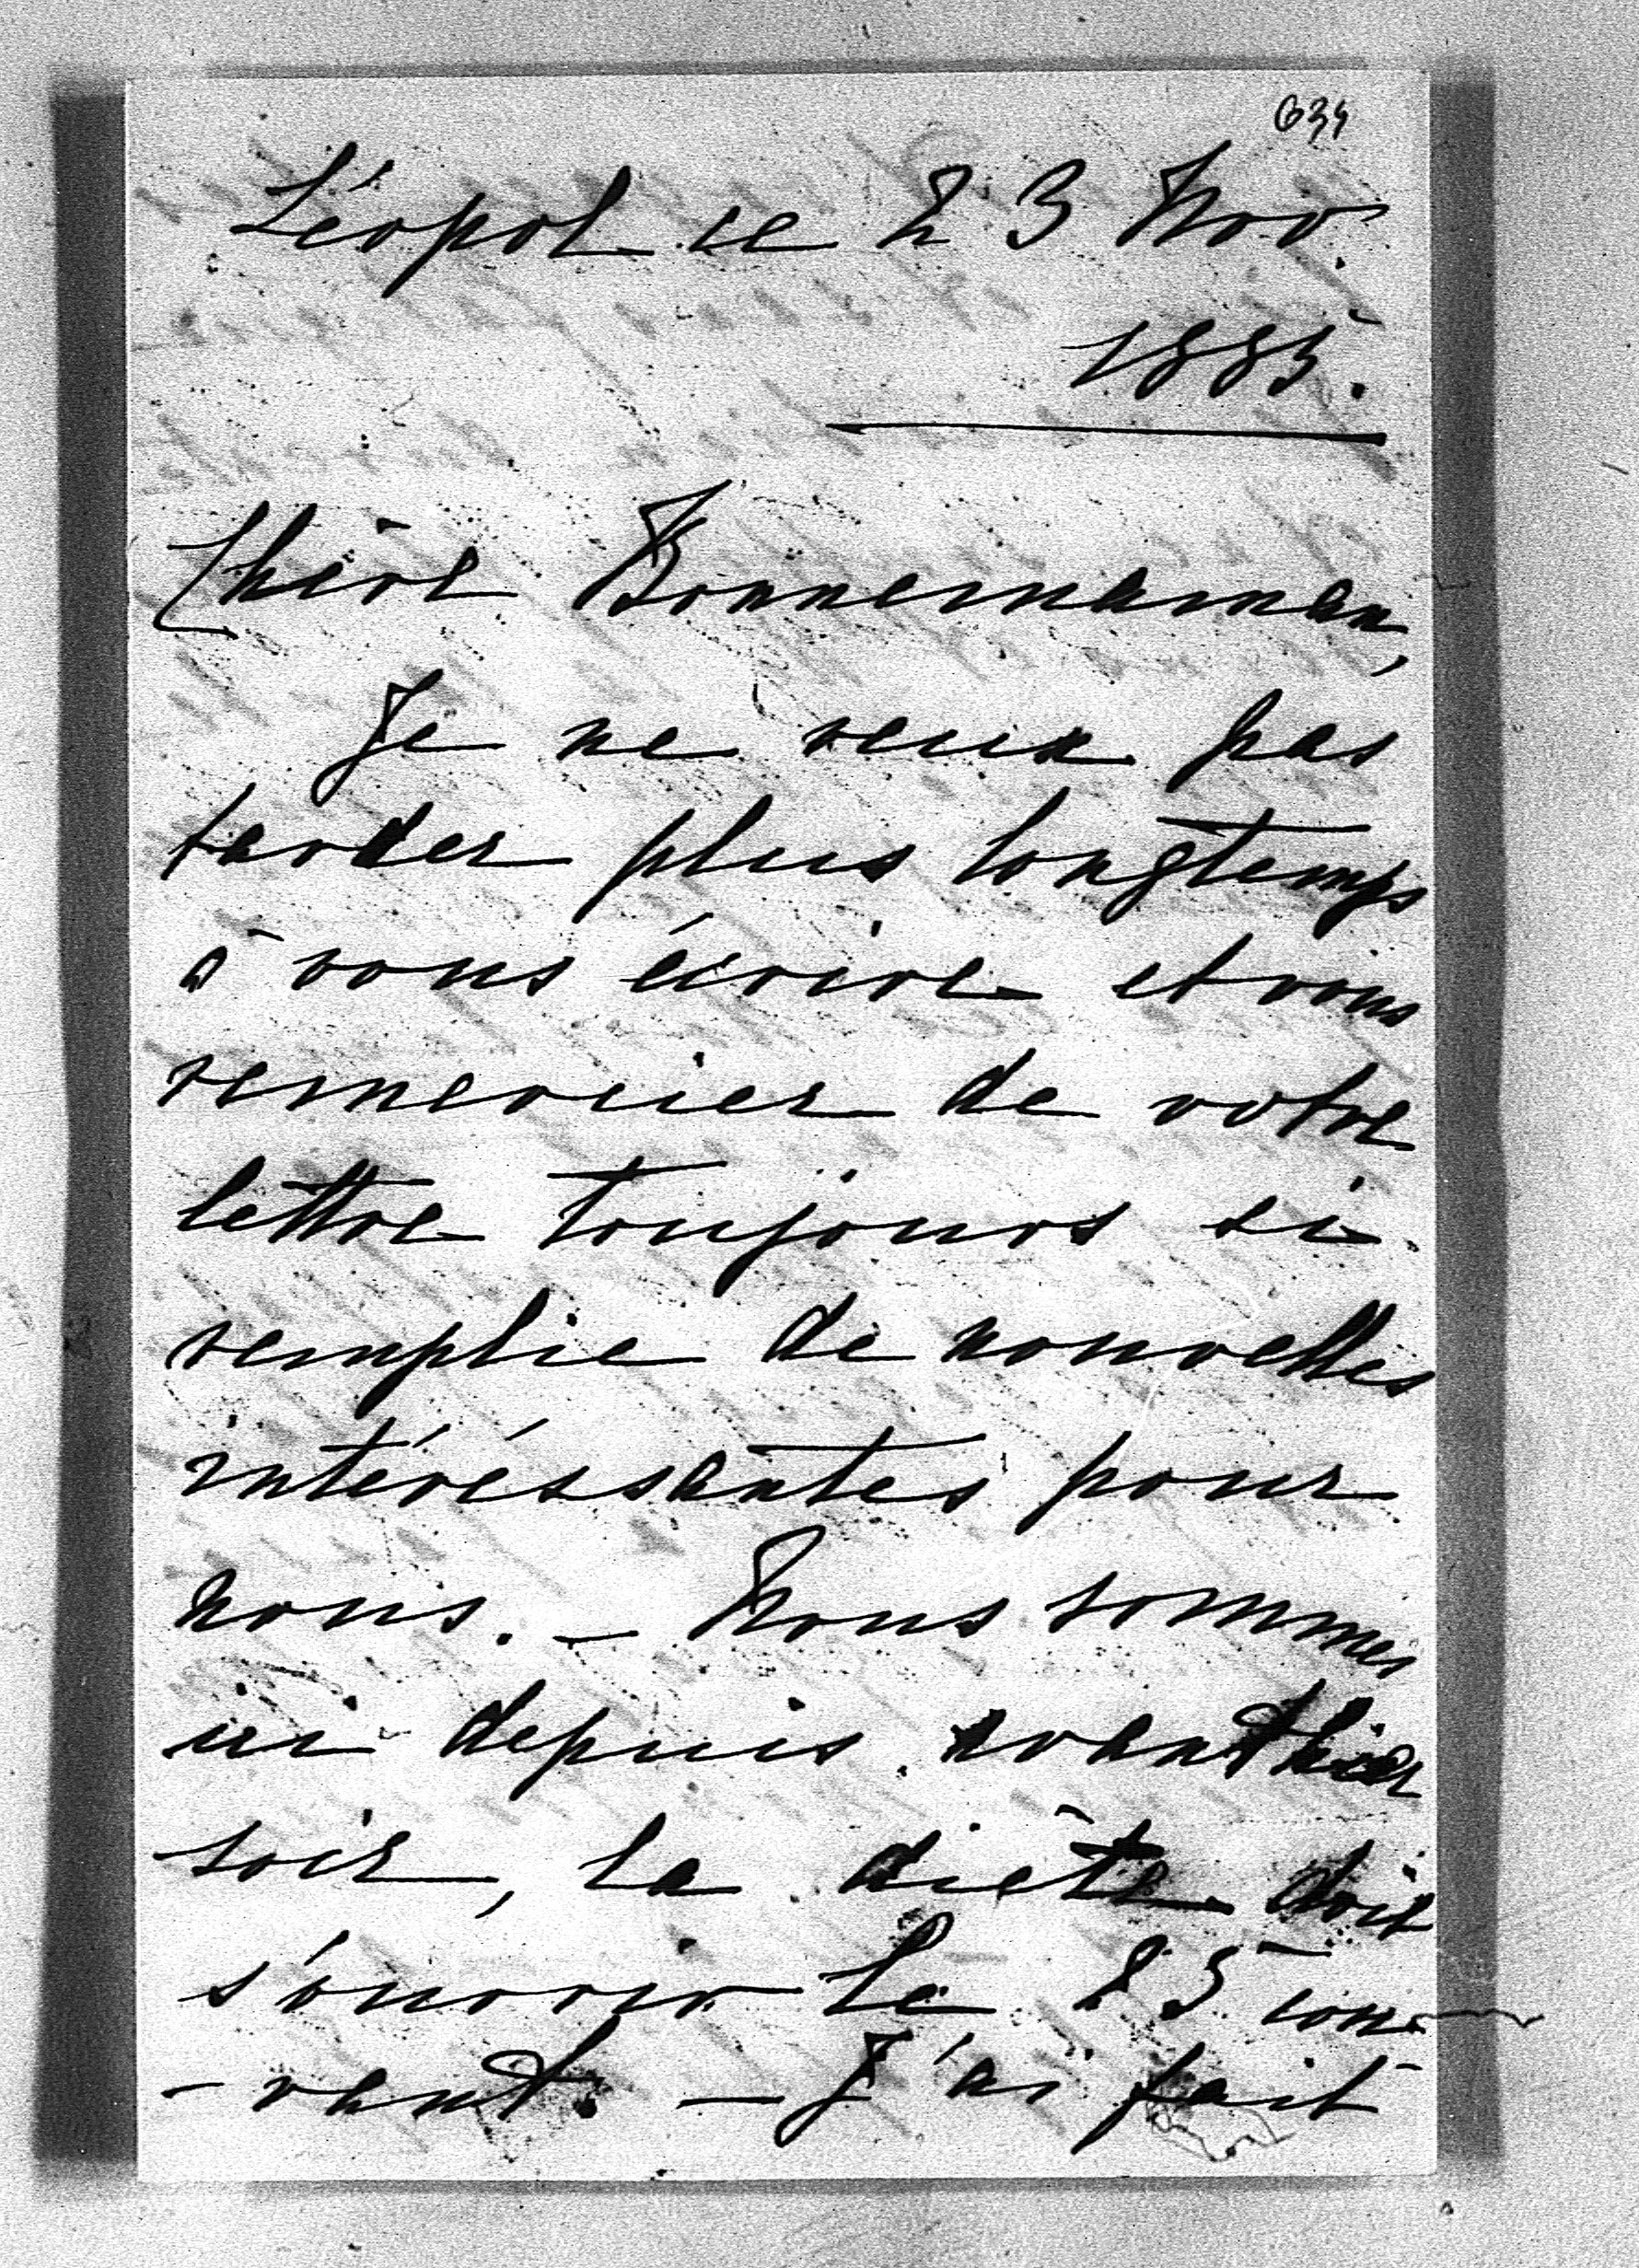 634
Léopol ce 23 Nov.
1885.
Chère Bonnemaman,
Je ne veux pas
tarder plus longtemps
à vous écrire et vous
remercier de votre
lettre toujours si
remplie de nouvelles
intéréssantes pour
nous. — Nous sommes
ici depuis avanthier
soir, la diète doit
s'ouvrir le 25 cou-
-rant. — J'ai fait